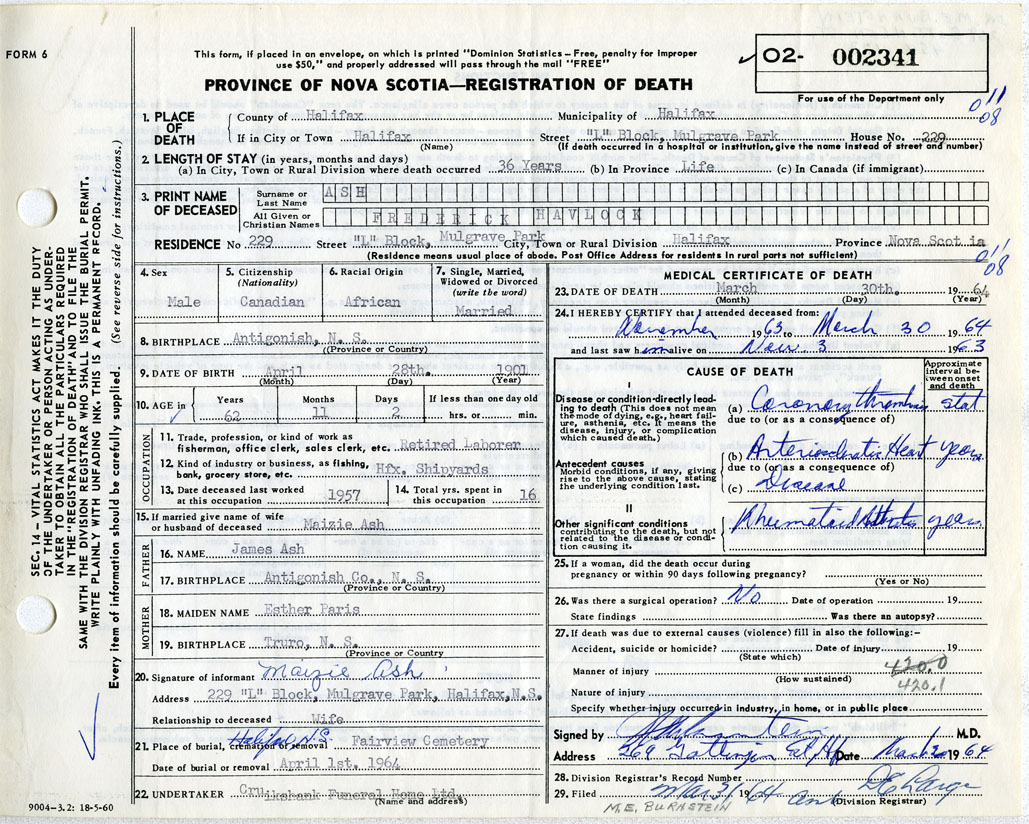 FORM 6
This form, if placed in an envelope, on which is printed "Dominion Statistics—Free, penalty for improper
use $50," and properly addressed will pass through the mail "FREE"
02- 002341
For use of the Department only
PROVINCE OF NOVA SCOTIA—REGISTRATION OF DEATH
011
08
1. PLACE OF DEATH
County of Halifax Municipality of Halifax
If in City or Town Halifax Street "L" Block, Mulgrave Park House No. 229
(Name) (If death occurred in a hospital or institution, give the name instead of street and number)
2. LENGTH OF STAY (in years, months and days)
(a) In City, Town or Rural Division where death occurred 36 Years (b) In Province Life (c) In Canada (if immigrant)
3. PRINT NAME OF DECEASED
Surname or Last Name ASH
All Given or Christian Names FREDERICK HAVLOCK
RESIDENCE No. 229 Street "L" Block, Mulgrave Park City, Town or Rural Division Halifax Province Nova Scotia
(Residence means usual place of abode. Post Office Address for residents in rural parts not sufficient)
011
08
4. Sex
Male
5. Citizenship
(Nationality)
Canadian
6. Racial Origin
African
7. Single, Married, Widowed or Divorced
(write the word)
Married
8. BIRTHPLACE Antigonish, N. S.
(Province or Country)
9. DATE OF BIRTH April 28th. 1901
(Month) (Day) (Year)
10. AGE in
Years Months Days If less than one day old
62 11 2 hrs. or min.
OCCUPATION
11. Trade, profession, or kind of work as
fisherman, office clerk, sales clerk, etc. Retired Laborer
12. Kind of industry or business, as fishing,
bank, grocery store, etc. Hfx. Shipyards
13. Date deceased last worked
at this occupation 1957
14. Total yrs. spent in
this occupation 16
15. If married give name of wife
or husband of deceased Maizie Ash
FATHER
16. NAME James Ash
17. BIRTHPLACE Antigonish Co., N. S.
(Province or Country)
MOTHER
18. MAIDEN NAME Esther Paris
19. BIRTHPLACE Truro, N. S.
(Province or Country
20. Signature of informant Maizie Ash
Address 229 "L" Block, Mulgrave Park, Halifax, N.S.
Relationship to deceased Wife
Halifax N.S.
21. Place of burial, cremation or removal Fairview Cemetery
Date of burial or removal April 1st. 1964
22. UNDERTAKER Cruikshank Funeral Home Ltd.
(Name and address)
9004-3.2: 18-5-60
MEDICAL CERTIFICATE OF DEATH
23. DATE OF DEATH March 30th. 1964
(Month) (Day) (Year)
24. I HEREBY CERTIFY that I attended deceased from:
November 1963 March 30 1964
and last saw him alive on Nov. 3 1963
CAUSE OF DEATH
Approximate interval between onset and death
I
Disease or condition directly leading to death (This does not mean the mode of dying, e.g., heart failure, asthenia, etc. It means the disease, injury, or complication which caused death.)
(a) Coronary thrombosis stat
due to (or as a consequence of)
Antecedent causes
Morbid conditions, if any, giving rise to the above cause, stating the underlying condition last.
(b) Arteriosclerotic Heart years
due to (or as a consequence of)
(c) Disease
II
Other significant conditions
contributing to the death, but not related to the disease or condition causing it.
Rheumatoid Arthritis years
25. If a woman, did the death occur during
pregnancy or within 90 days following pregnancy?
(Yes or No)
26. Was there a surgical operation? No Date of operation 19
State findings Was there an autopsy?
27. If death was due to external causes (violence) fill in also the following:—
Accident, suicide or homicide? Date of injury 19
(State which)
Manner of injury 420.0
(How sustained) 420.1
Nature of injury
Specify whether injury occurred in industry, in home, or in public place
Signed by M.D.
Address 269 Gottingen St Hfx Date 1964
28. Division Registrar's Record Number
29. Filed Mar 31 64
(Division Registrar)
M.E. BURNSTEIN
SEC. 14 – VITAL STATISTICS ACT MAKES IT THE DUTY
OF THE UNDERTAKER OR PERSON ACTING AS UNDER-
TAKER TO OBTAIN ALL THE PARTICULARS REQUIRED
IN THE "REGISTRATION OF DEATH" AND TO FILE THE
SAME WITH THE DIVISION REGISTRAR WHO SHALL ISSUE THE BURIAL PERMIT.
WRITE PLAINLY WITH UNFADING INK. THIS IS A PERMANENT RECORD.
Every item of information should be carefully supplied. (See reverse side for instructions.)